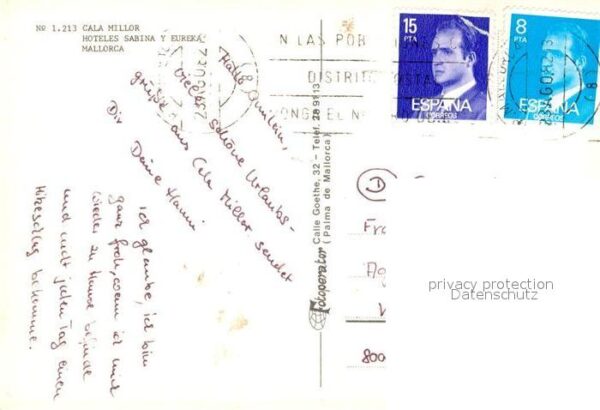 Nº 1.213 CALA MILLOR
HOTELES SABINA Y EUREKA
MALLORCA
15
PTA
ESPAÑA
CORREOS
8
PTA
ESPAÑA
CORREOS
N LAS POB
DISTRIT
OSTA
Hallo
viele schöne Urlaubs-
grüße aus Cala Millor sendet
Dir
Deine Hanni
Ich glaube, ich bin
ganz froh, wenn ich mich
wieder zu Hause befinde
und nicht jeden Tag einen
Hitzeschlag bekomme.
Fotoperator Calle Goethe, 32 - Telef. 28 91 13
(Palma de Mallorca)
D
Fra
Ag
800
privacy protection
Datenschutz